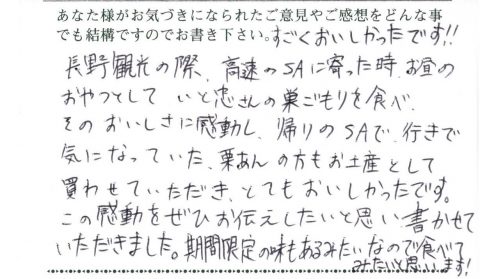 あなた様がお気づきになられたご意見やご感想をどんな事
でも結構ですのでお書き下さい。すごくおいしかったです!!
長野観光の際、高速のSAに寄った時、お昼の
おやつとして いと忠さんの巣ごもりを食べ、
そのおいしさに感動し、帰りのSAで、行きで
気になっていた、栗あんの方もお土産として
買わせていただき、とてもおいしかったです。
この感動をぜひお伝えしたいと思い書かせて
いただきました。期間限定の味もあるみたいなので食べて
みたいと思います!